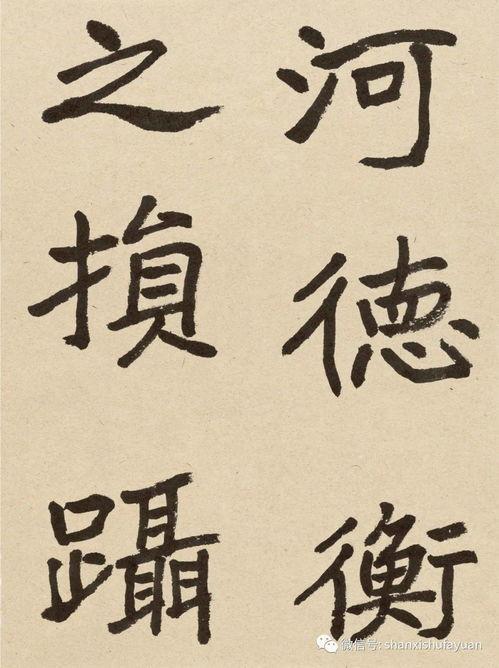 河徳衡
之損躡
微信号: shanxishufayuan